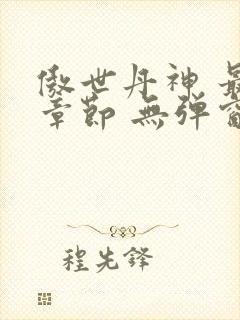 傲世丹神 最
章節 無彈窗
程先鋒